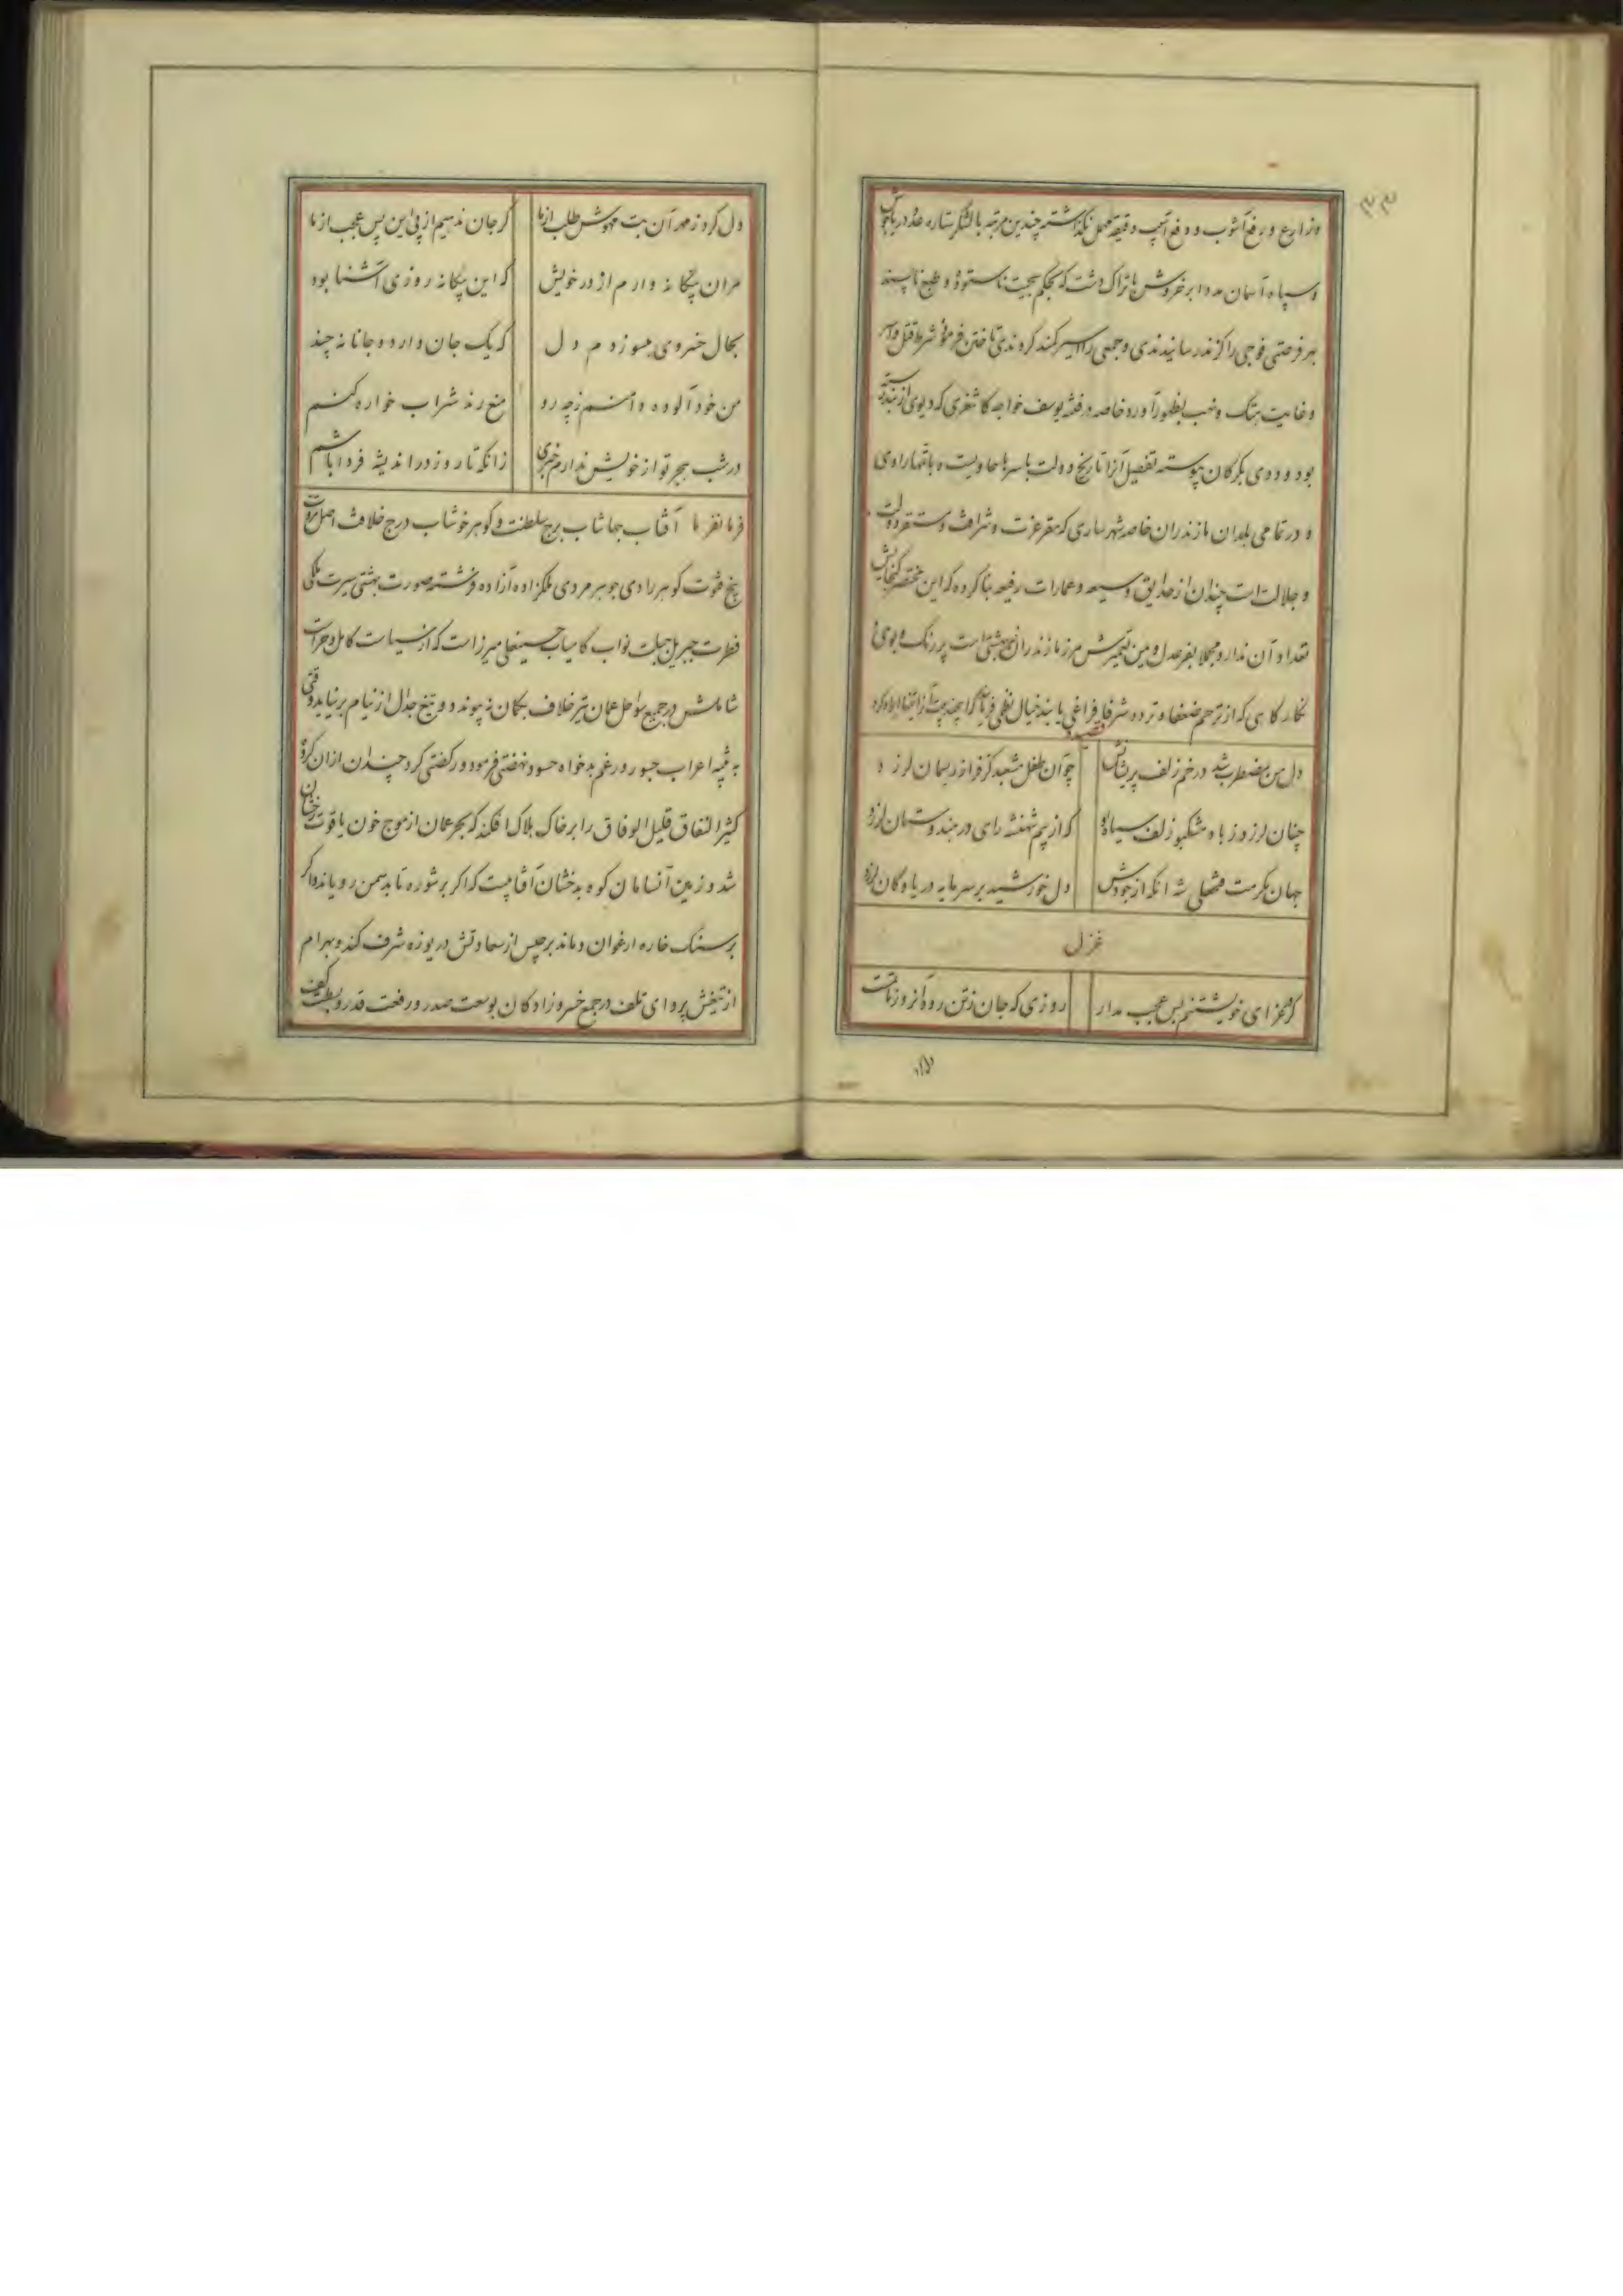 وزارع و رفع آشوب و دفع آسیب دقیقهٔ مهمل نگذاشته چندین مرتبه با لشکر ستاره عدد دریا جوش
و سپاه آسمان مدد ابر خروش با تراک دشت که بحکم سجیت ناستوده و طبع ناپسند
بهر فرصتی فوجی را گزند رسانیدندی و جمعی را اسیر کمند کردندی تاختن فرموده شرط قتل و اسر
و غایت هتک و نهب بظهور آورده خاصه در فتنه یوسف خواجه کاشغری که دیوی از بند
بود و ددی بگرگان پیوسته تفصیل آنرا تاریخ دولت باسرها حاویست و باتمها راوی
و در تمامی بلدان مازندران خاصه شهر ساری که مقر عزت و شرافت و مستقر دولت
و جلالت است چندان از حدایق وسیعه و عمارات رفیعه بنا کرده که این مختصر گنجایش
تعداد آن ندارد مجملا بفر عدل و یمن تعمیرش مرز مازندران بهشتی است پر رنگ و بوی
نگار گاهی که از ترحم ضعفا و تردد شرفا فراغی یابند خیال نظمی فرمایند این چند بیت از ایشان ایراد کرد
قصیده
دل من مضطرب شد در خم زلف پریشانش
چو آن طفل مشعبد کز فراز ریسمان لرزد
چنان لرزد ز باد مشکبو زلف سیاه او
که از بیم شهنشه رای در هندوستان لرزد
جهان مکرمت فتحعلی شه آنکه از جودش
دل خورشید بر سرمایه دریا و کان لرزد
غزل
گر هجر ای خویشتنم بس عجب مدار
روزی که جان ز تن رود آنروز ماتمست
دل
دل کرد ز مهر آن بت مهوش طلب از ما
گر جان ندهیم از پی این پس عجب از ما
مران بیگانه وارم از در خویش
که این بیگانه روزی آشنا بود
بحال خسروی میسوزدم دل
که یک جان دارد و جانانه چند
من خود آلوده دامنم ز چه رو
منع رند شراب خواره کنم
در شب هجر تو از خویش ندارم خبری
زانکه تا روز در اندیشه فردا باشم
فرمانفرما آفتاب جهانتاب برج سلطنت و گوهر خوشاب درج خلافت اصل مروت
بیخ فتوت گوهر رادی جوهر مردی ملکزاده آزاده فرشته صورت بهشتی سیرت ملکی
فطرت جبریل جبلت نواب کامیاب حسینعلی میرزاست که از سیاست کامل و حراست
شاملش در جمیع سواحل عمان تیر خلاف بکمان نه پیوندد و تیغ جدال از نیام برنیاید وقتی
به تنبیه اعراب جسور و رغم بدخواه حسود نهضتی فرمود و رکضتی کرد چندان از آن گروه
کثیر النفاق قلیل الوفاق را بر خاک هلاک افکند که بحر عمان از موج خون یاقوت رخشان
شد و زمین آنسامان کوه بدخشان آفتابیست که اگر بر شوره تابد سمن رویاند و اگر
بر سنگ خاره ارغوان دماند برجیس از سعادتش دریوزه شرف کند و بهرام
از تیغش پروای تلف در جمع خسروزادگان بوسعت صدر و رفعت قدر و بسطت کف